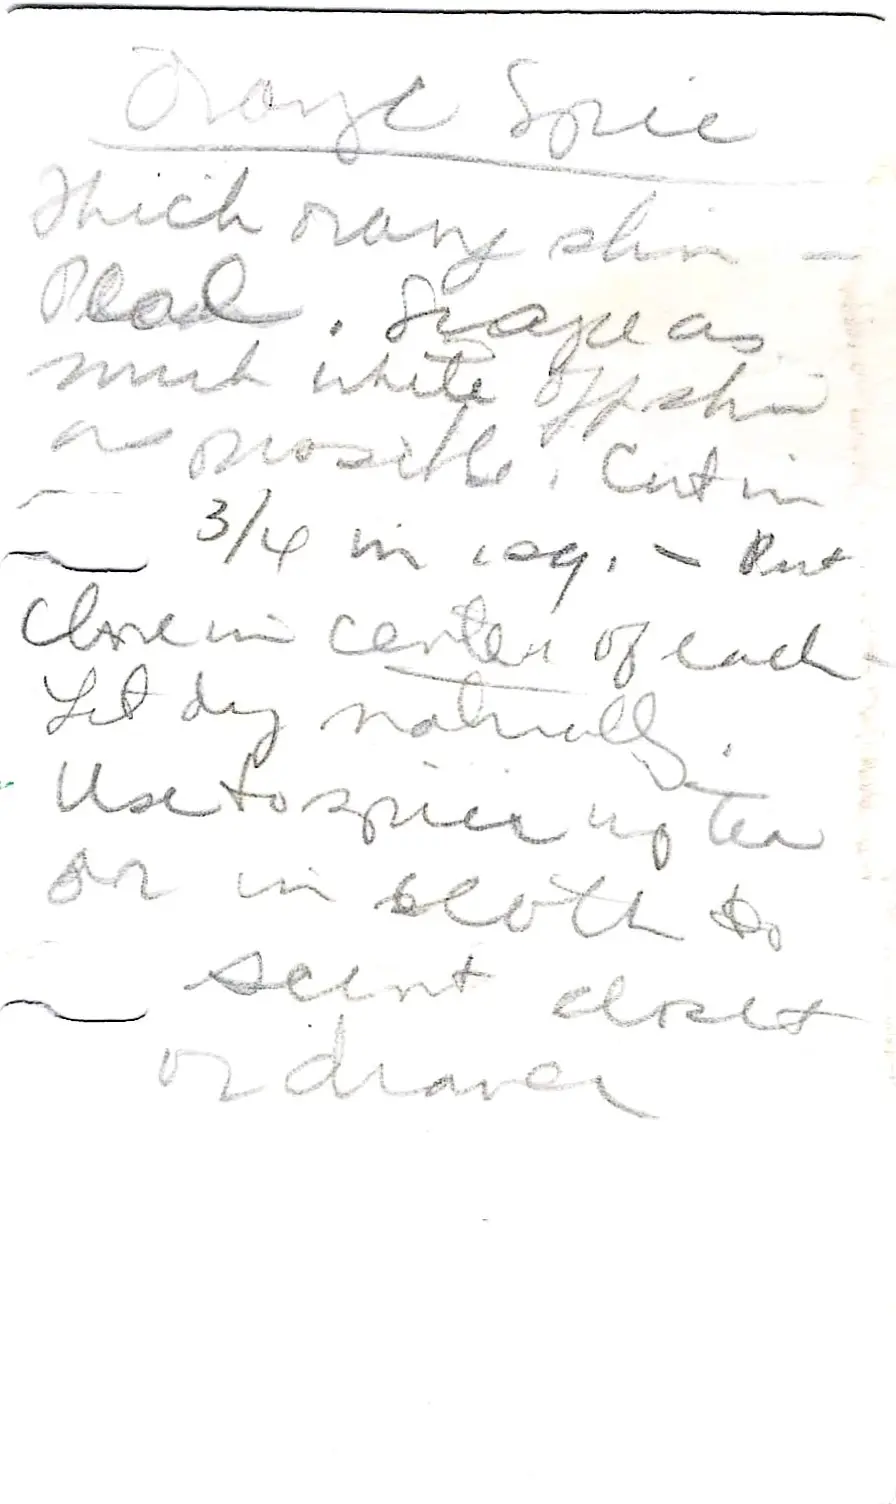 Orange Spice
Thick orang skin —
Peal. Scrape as
much white off skin
as possible. Cut in
3/4 in sq. – Put
clove in center of each
Let dry naturally.
Use to spice up tea
or in cloth to
scent closet
or drawer